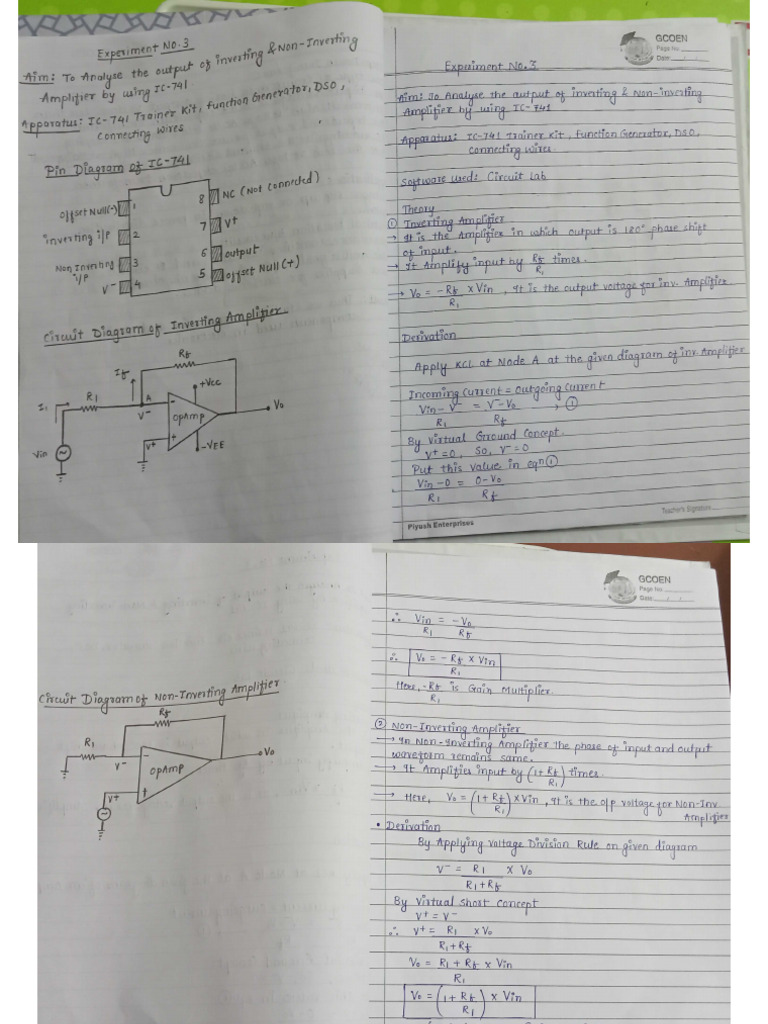 Experiment No.3
Aim: To Analyse the output of inverting & Non-Inverting
Amplifier by using IC-741
Apparatus: IC-741 Trainer Kit, function Generator, DSO,
Connecting Wires
Pin Diagram of IC-741
offset Null(-) 1
8 NC (Not connected)
inverting i/P 2
7 V+
Non Inverting 3
i/P
6 output
V- 4
5 offset Null (+)
Circuit Diagram of Inverting Amplifier
Rf
If
+Vcc
I1
R1
A
V-
-
OPAmp
Vo
V+
+
-VEE
Vin
GCOEN
Page No.
Date: / /
Experiment No. 3
Aim: To Analyse the output of inverting & Non-inverting
Amplifier by using IC-741
Apparatus: IC-741 Trainer Kit, function Generator, DSO,
connecting wires
Software used: Circuit Lab
Theory
① Inverting Amplifier
→ It is the Amplifier in which output is 180° phase shift
of input.
→ It Amplify input by Rf/R1 times.
→ Vo = -Rf/R1 x Vin, It is the output voltage for inv. Amplifier
Derivation
Apply KCL at Node A at the given diagram of inv. Amplifier
Incoming Current = Outgoing Current
Vin - V-/R1 = V- - Vo/Rf → ①
By Virtual Ground Concept.
V+ = 0, So, V- = 0
Put this value in eqn ①
Vin - 0/R1 = 0 - Vo/Rf
Teacher's Signature
Piyush Enterprises
Circuit Diagram of Non-Inverting Amplifier
Rf
R1
V-
-
OPAmp
Vo
V+
+
GCOEN
Page No.
Date: / /
∴ Vin/R1 = -Vo/Rf
∴ Vo = -Rf/R1 x Vin
Here, -Rf/R1 is Gain Multiplier.
② Non-Inverting Amplifier
→ In Non-Inverting Amplifier The phase of input and output
waveform remains same.
→ It Amplifier input by (1 + Rf/R1) times.
→ Here, Vo = (1 + Rf/R1) x Vin, It is the o/p voltage for Non-Inv.
Amplifier
• Derivation
By Applying Voltage Division Rule on given diagram
V- = R1/R1+Rf x Vo
By Virtual Short Concept
V+ = V-
∴ V+ = R1/R1+Rf x Vo
Vo = R1 + Rf/R1 x Vin
Vo = (1 + Rf/R1) x Vin